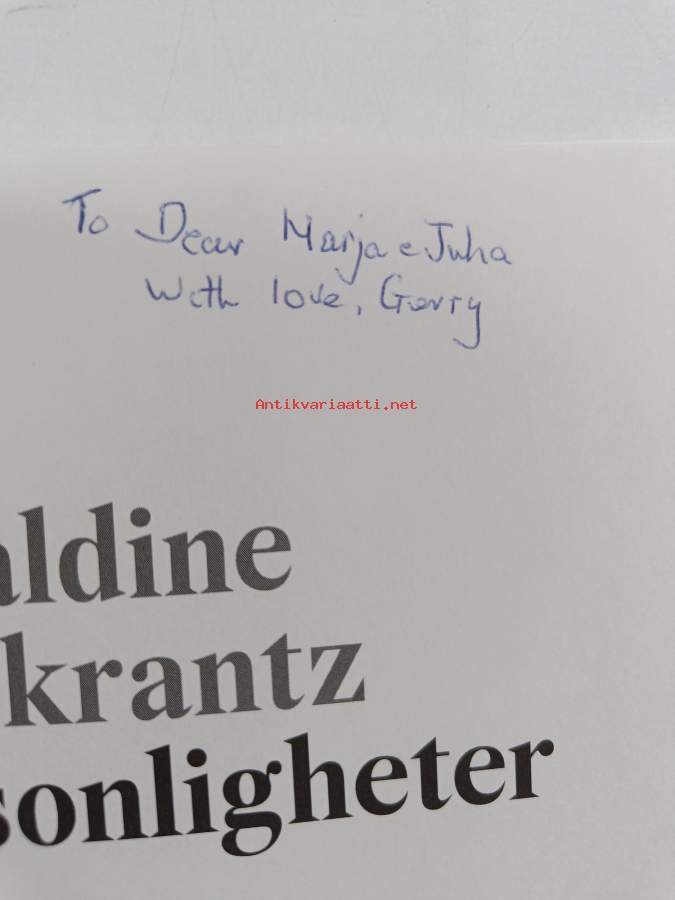 To Dear Marja e Juha
With love, Gerry
Antikvariaatti.net
aldine
krantz
sonligheter